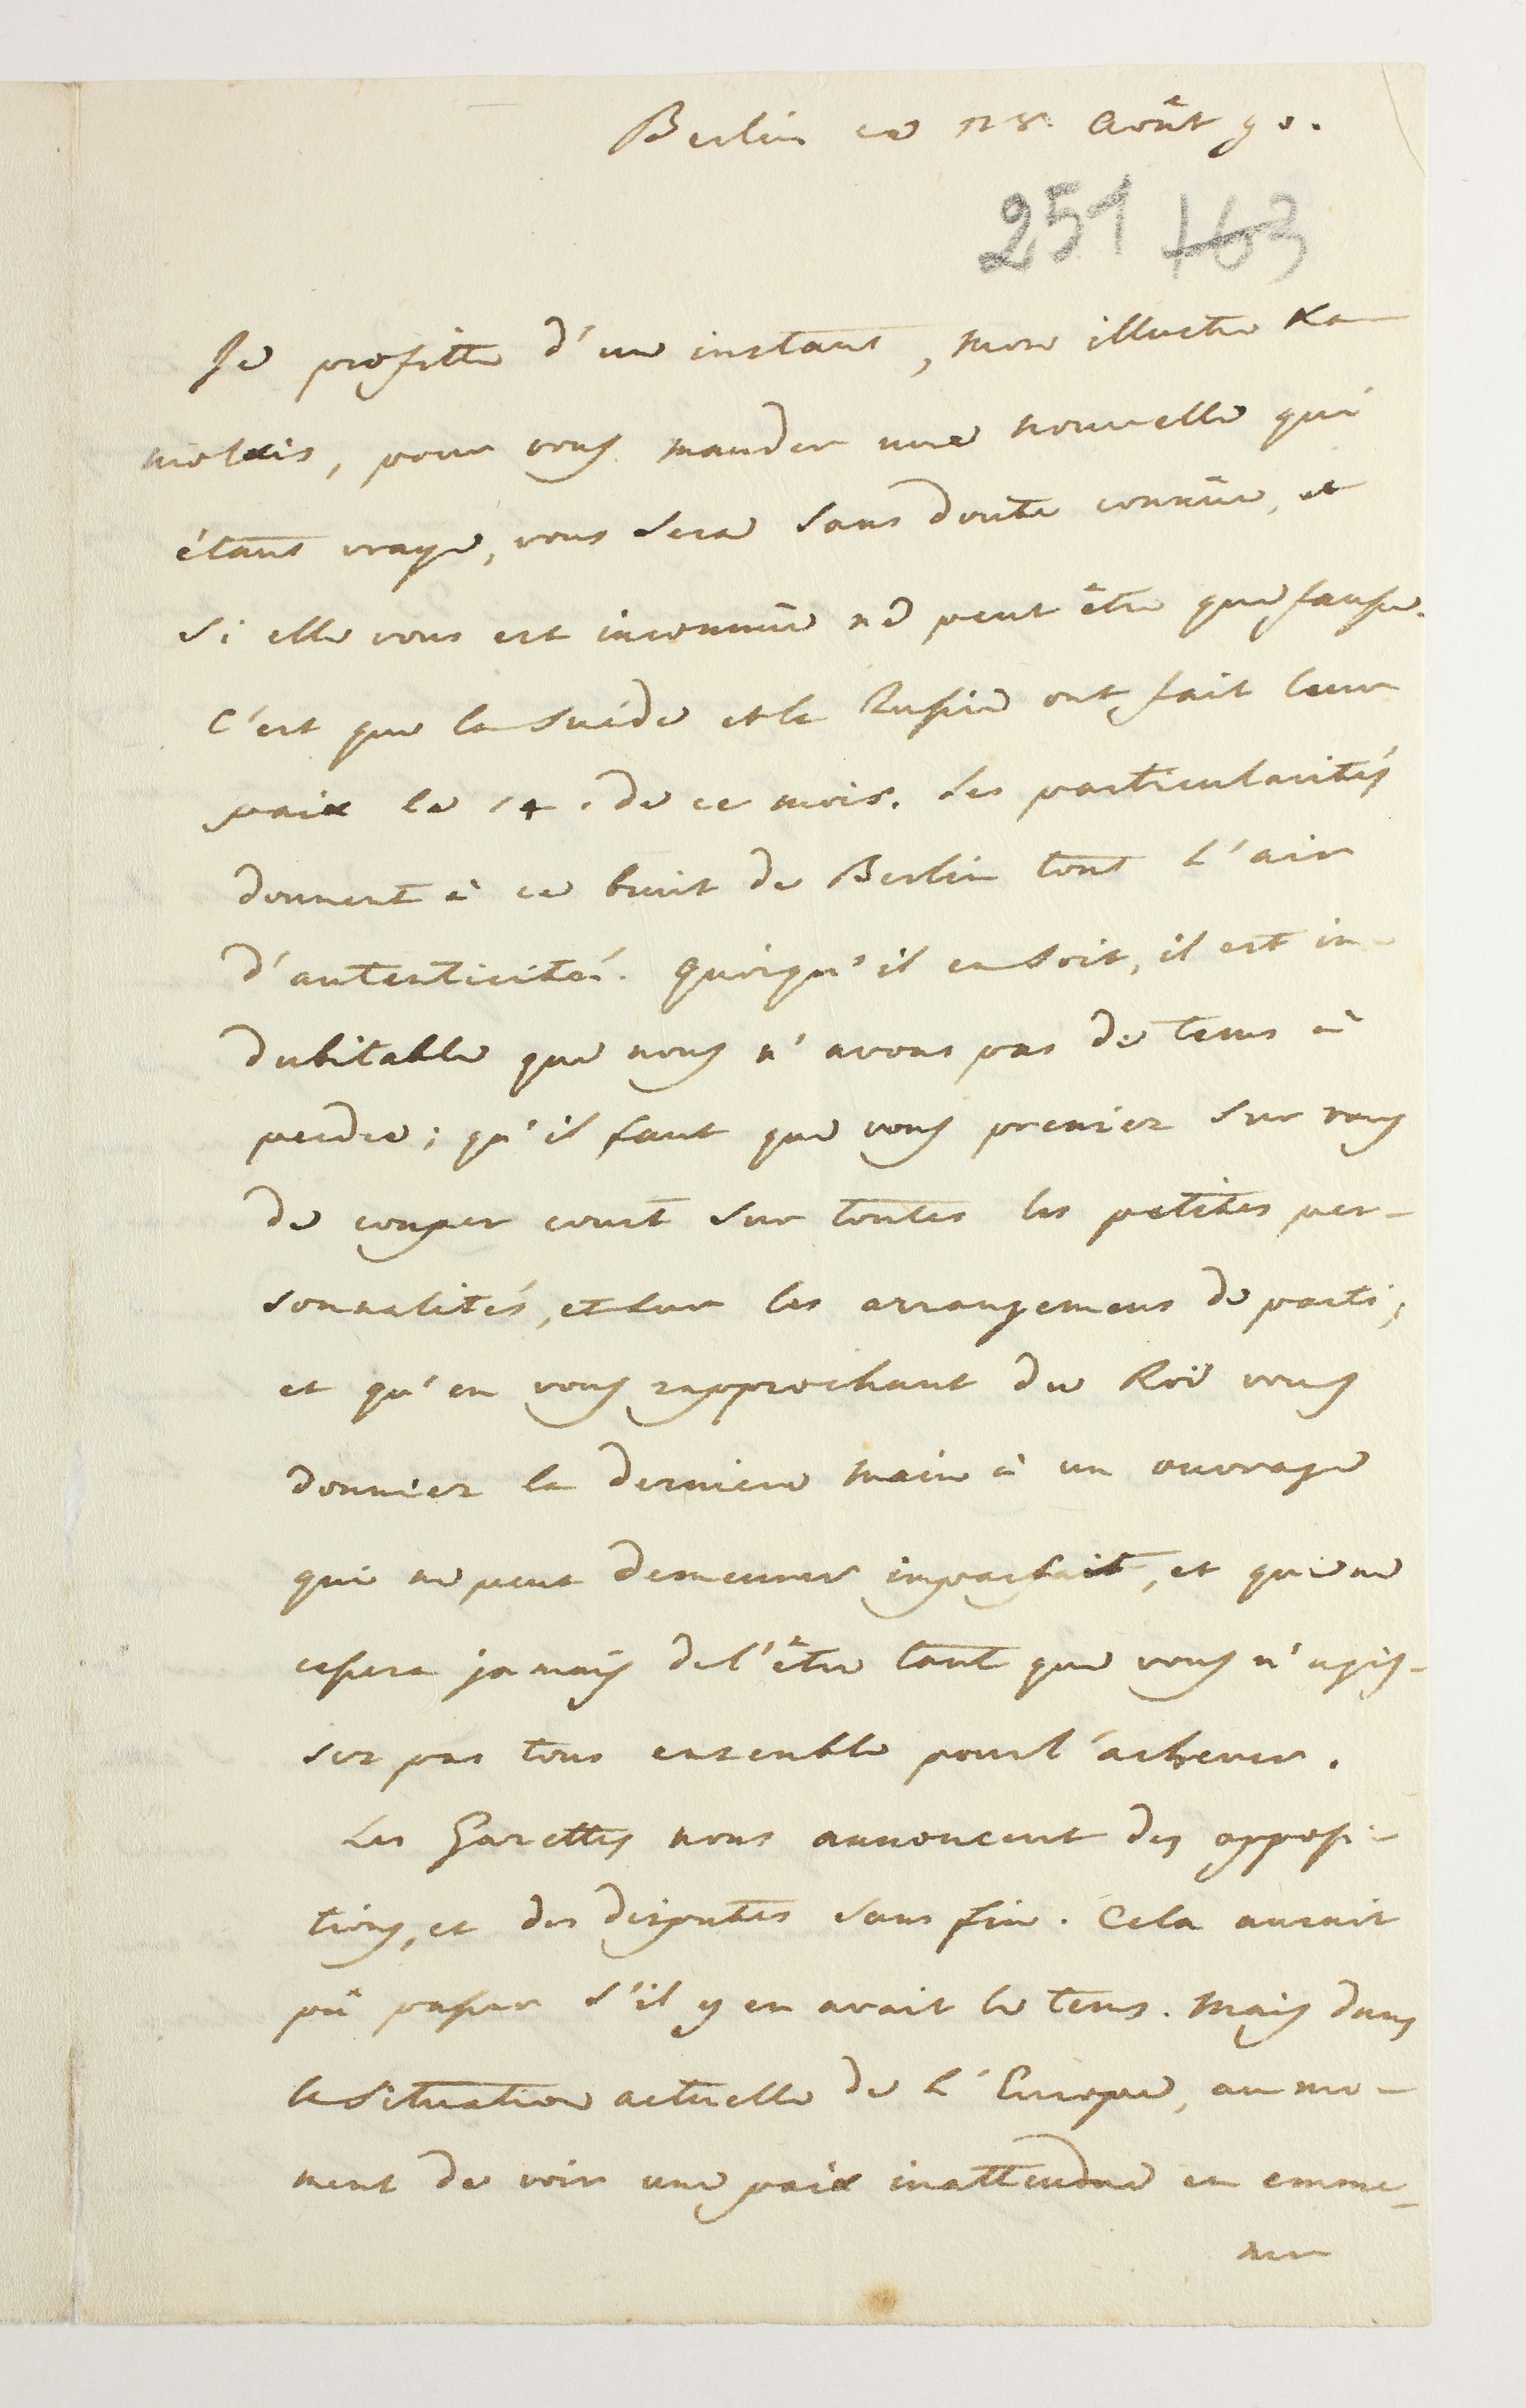 Berlin ce 28. Août 90.
251 163
Je profitte d'un instant, mon illustre Ka-
niolais, pour vous mander une nouvelle qui
étant vraye, vous sera sans doute connüe, et
si elle vous est inconnüe ne peut être que fausse.
C'est que la Suéde et la Russie ont fait leur
paix le 14. de ce mois. Les particularités
donnent à ce bruit de Berlin tout l'air
d'autenticité. Quoiqu'il en soit, il est in-
dubitable que nous n'avons pas de tems à
perdre; qu'il faut que vous preniez sur vous
de couper court sur toutes les petites per-
sonnalités, et sur les arrangemens de parti;
et qu'en vous rapprochant du Roi vous
donniez la derniere main à un ouvrage
qui ne peut demeurer imparfait, et qui ne
cessera jamais de l'être tant que vous n'agis-
sez pas tous ensemble pour l'achever.
Les Gazettes nous annoncent des opposi-
tions, et des disputes sans fin. Cela aurait
pû passer s'il y en avait le tems. Mais dans
la situation actuelle de l'Europe, au mo-
ment de voir une paix inattendue en emme-
ner